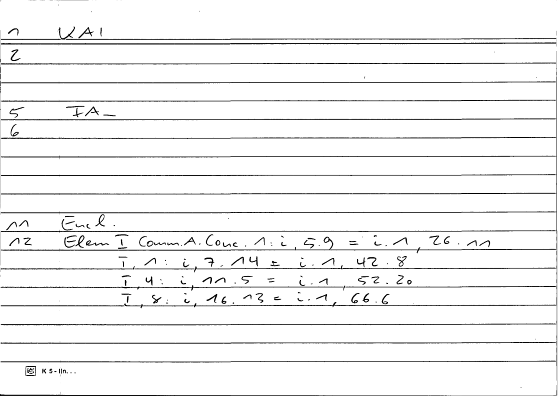 1 KAI
2
5 IA_
6
11 Eucl.
12 Elem I Comm.A.Conc. 1: i, 5.9 = i.1, 26.11
I, 1: i, 7.14 = i.1, 42.8
I, 4: i, 11.5 = i.1, 52.20
I, 8: i, 16.13 = i.1, 66.6
K 5 - lin...